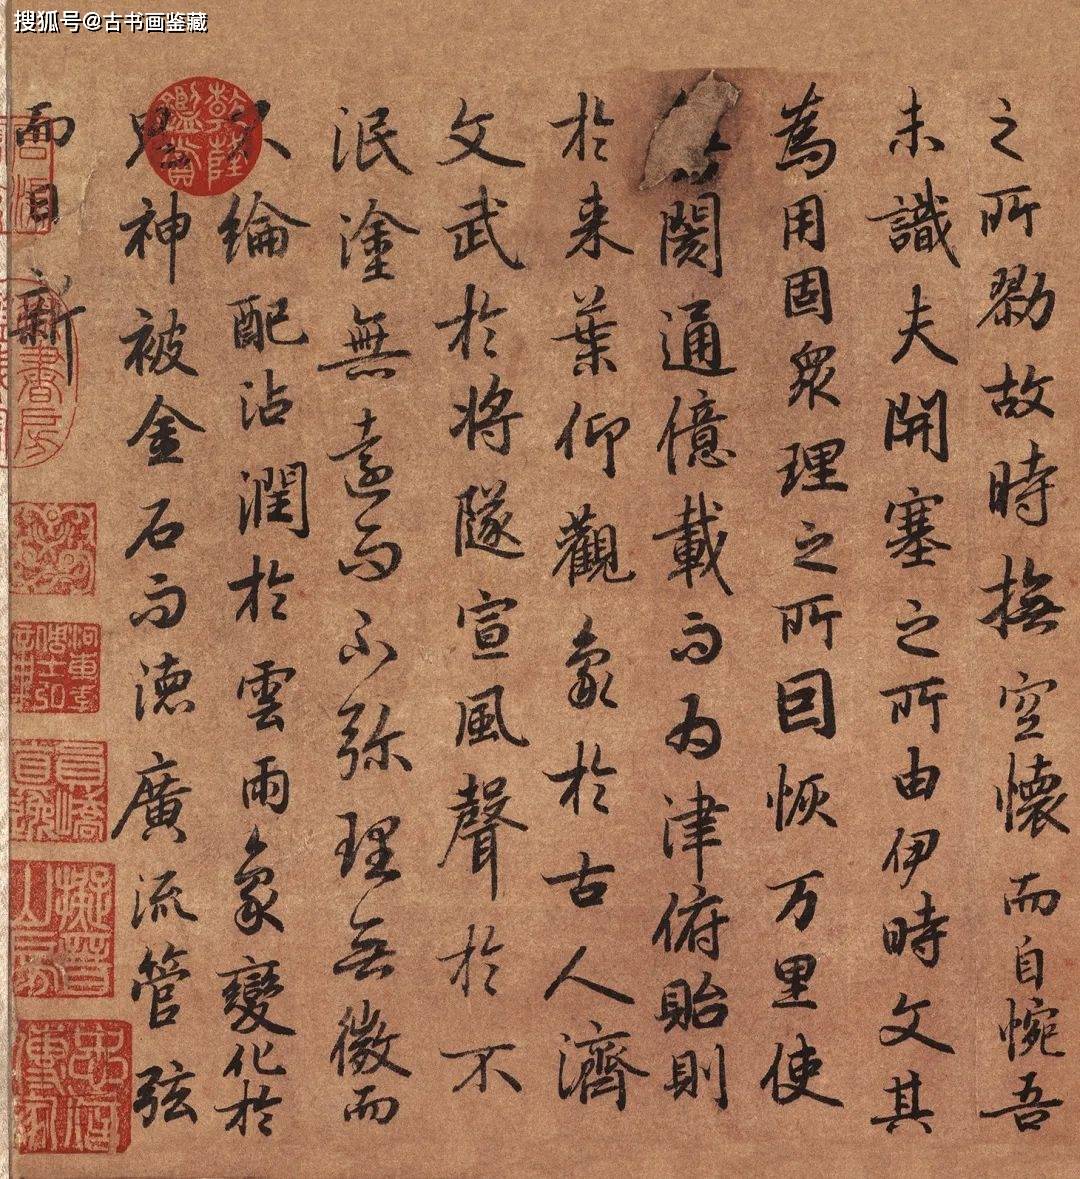 搜狐号@古书画鉴藏
之所勠故時撫空懷而自惋吾
未識夫開塞之所由伊時文其
為用固眾理之所因恢万里使
閡通億載而為津俯貽則
於来葉仰觀象於古人濟
文武於将隧宣風聲於不
泯塗無遠而不弥理無微而
不綸配沾潤於雲雨象變化於
鬼神被金石而德廣流管弦
而日新
乾隆鑑賞